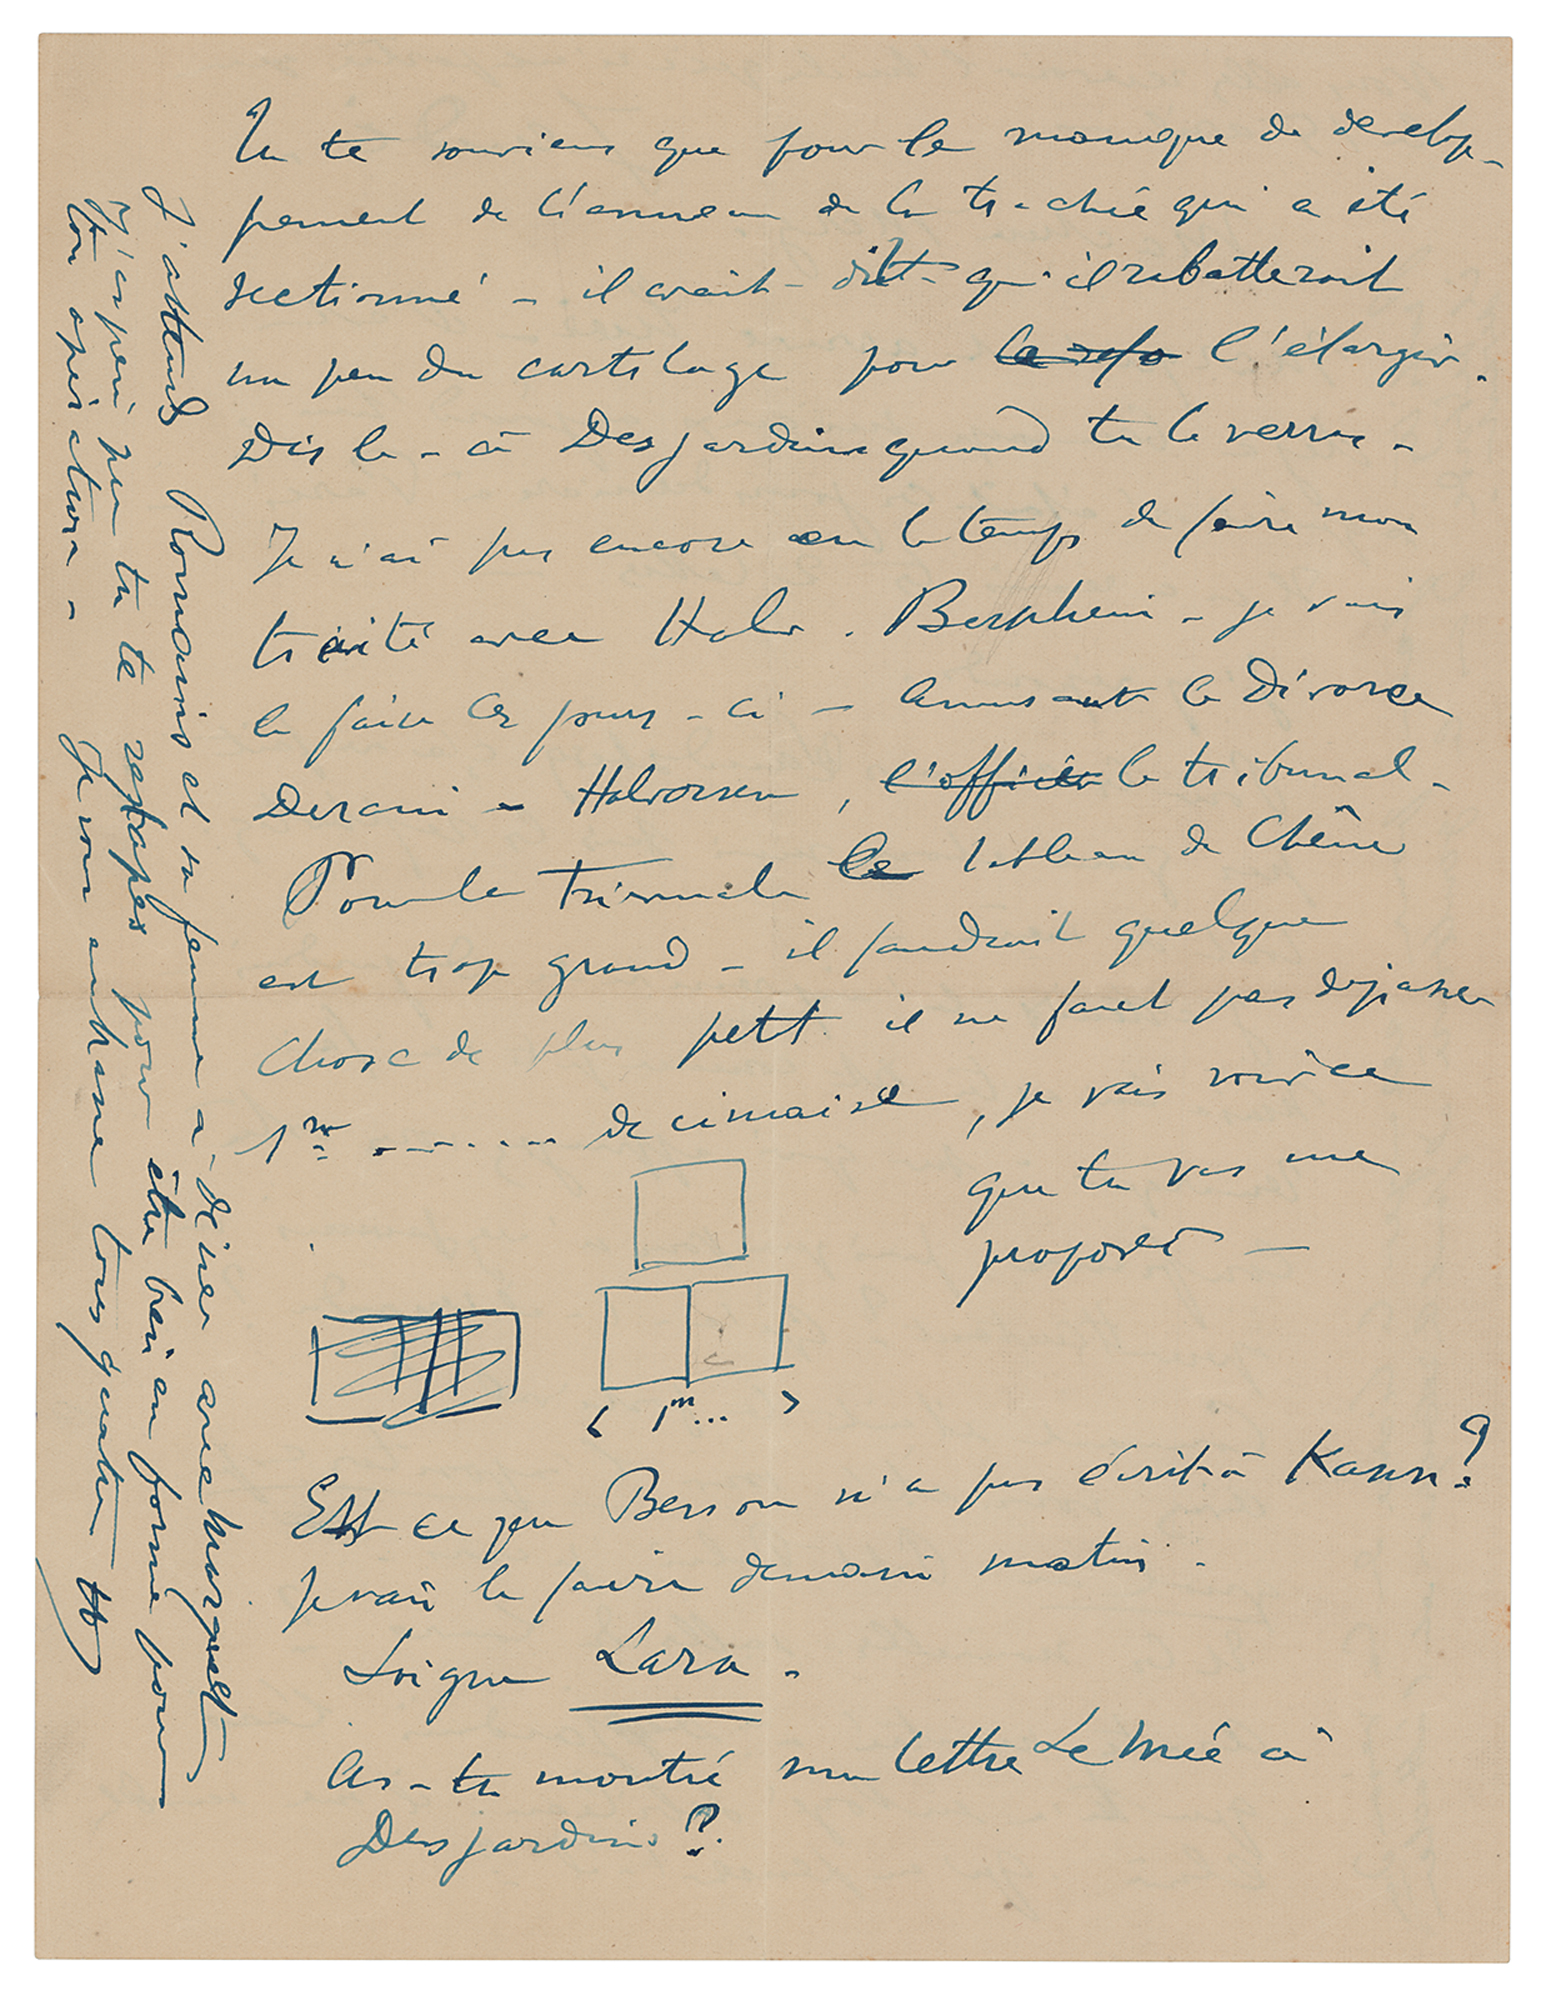 Tu te souviens que pour le manque de develop-
pement de l'anneau de la trachée qui a été
sectionné – il avait dit qu'il rabatterait
un peu du cartilage pour l'élargir.
Dis le – à Desjardins quand tu le verras –
Je n'ai pas encore eu le temps de faire mon
traité avec Halv. Bernheim – je vais
le faire ces jours-ci – Amusante le Divorce
Derain – Halvorsen, l'officier le tribunal –
Pour la Triennale le tableau de Chêne
est trop grand – il faudrait quelque
chose de plus petit. il ne faut pas dépasser
1m ....... de cimaise, je vais voir ce
que tu vas me
proposer –
1m...
Est ce que Besson n'a pas écrit à Kann?
je vais le faire demain matin.
Soigne Lara –
As-tu montré ma lettre Le Mée à
Desjardins?
J'attends Romains et sa femme à dîner avec Marguerite
J'espère que tu te retapes pour être bien en forme pour
ton opération – Je vous embrasse tous quatre H